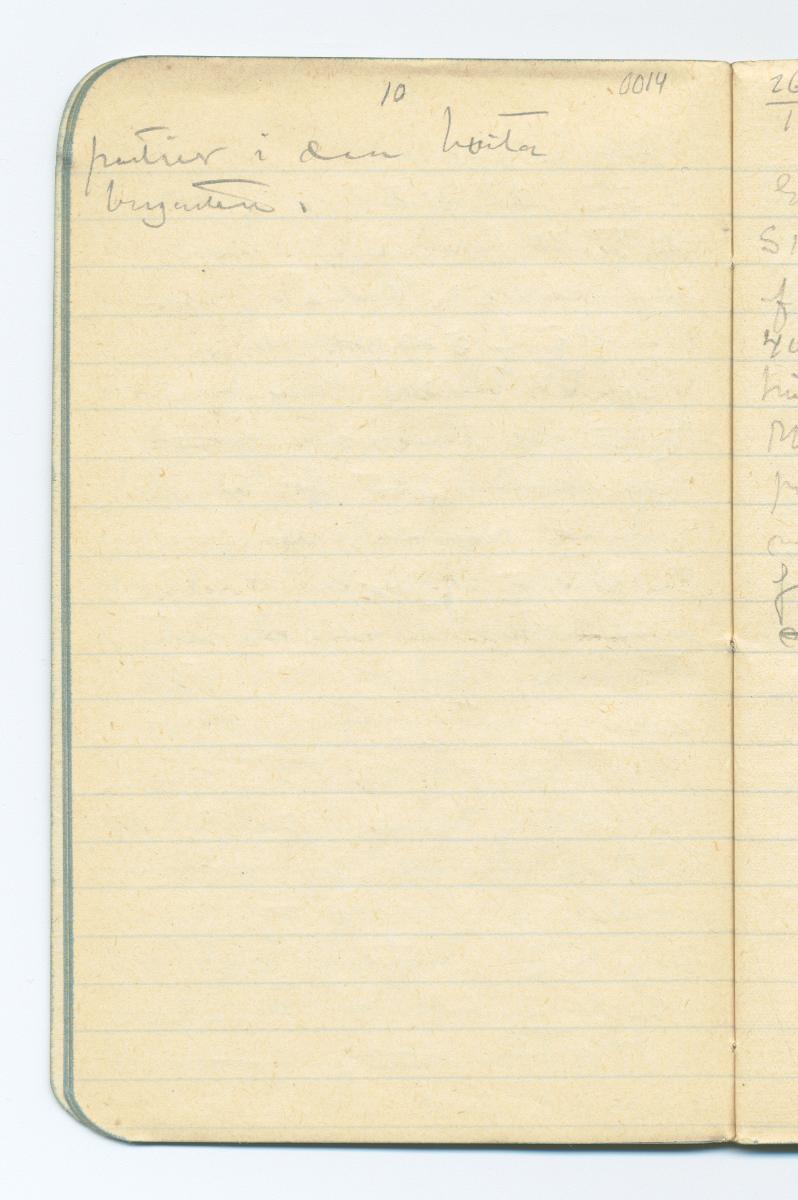 10
0014
partier i den hvita
brigaden.
26
1